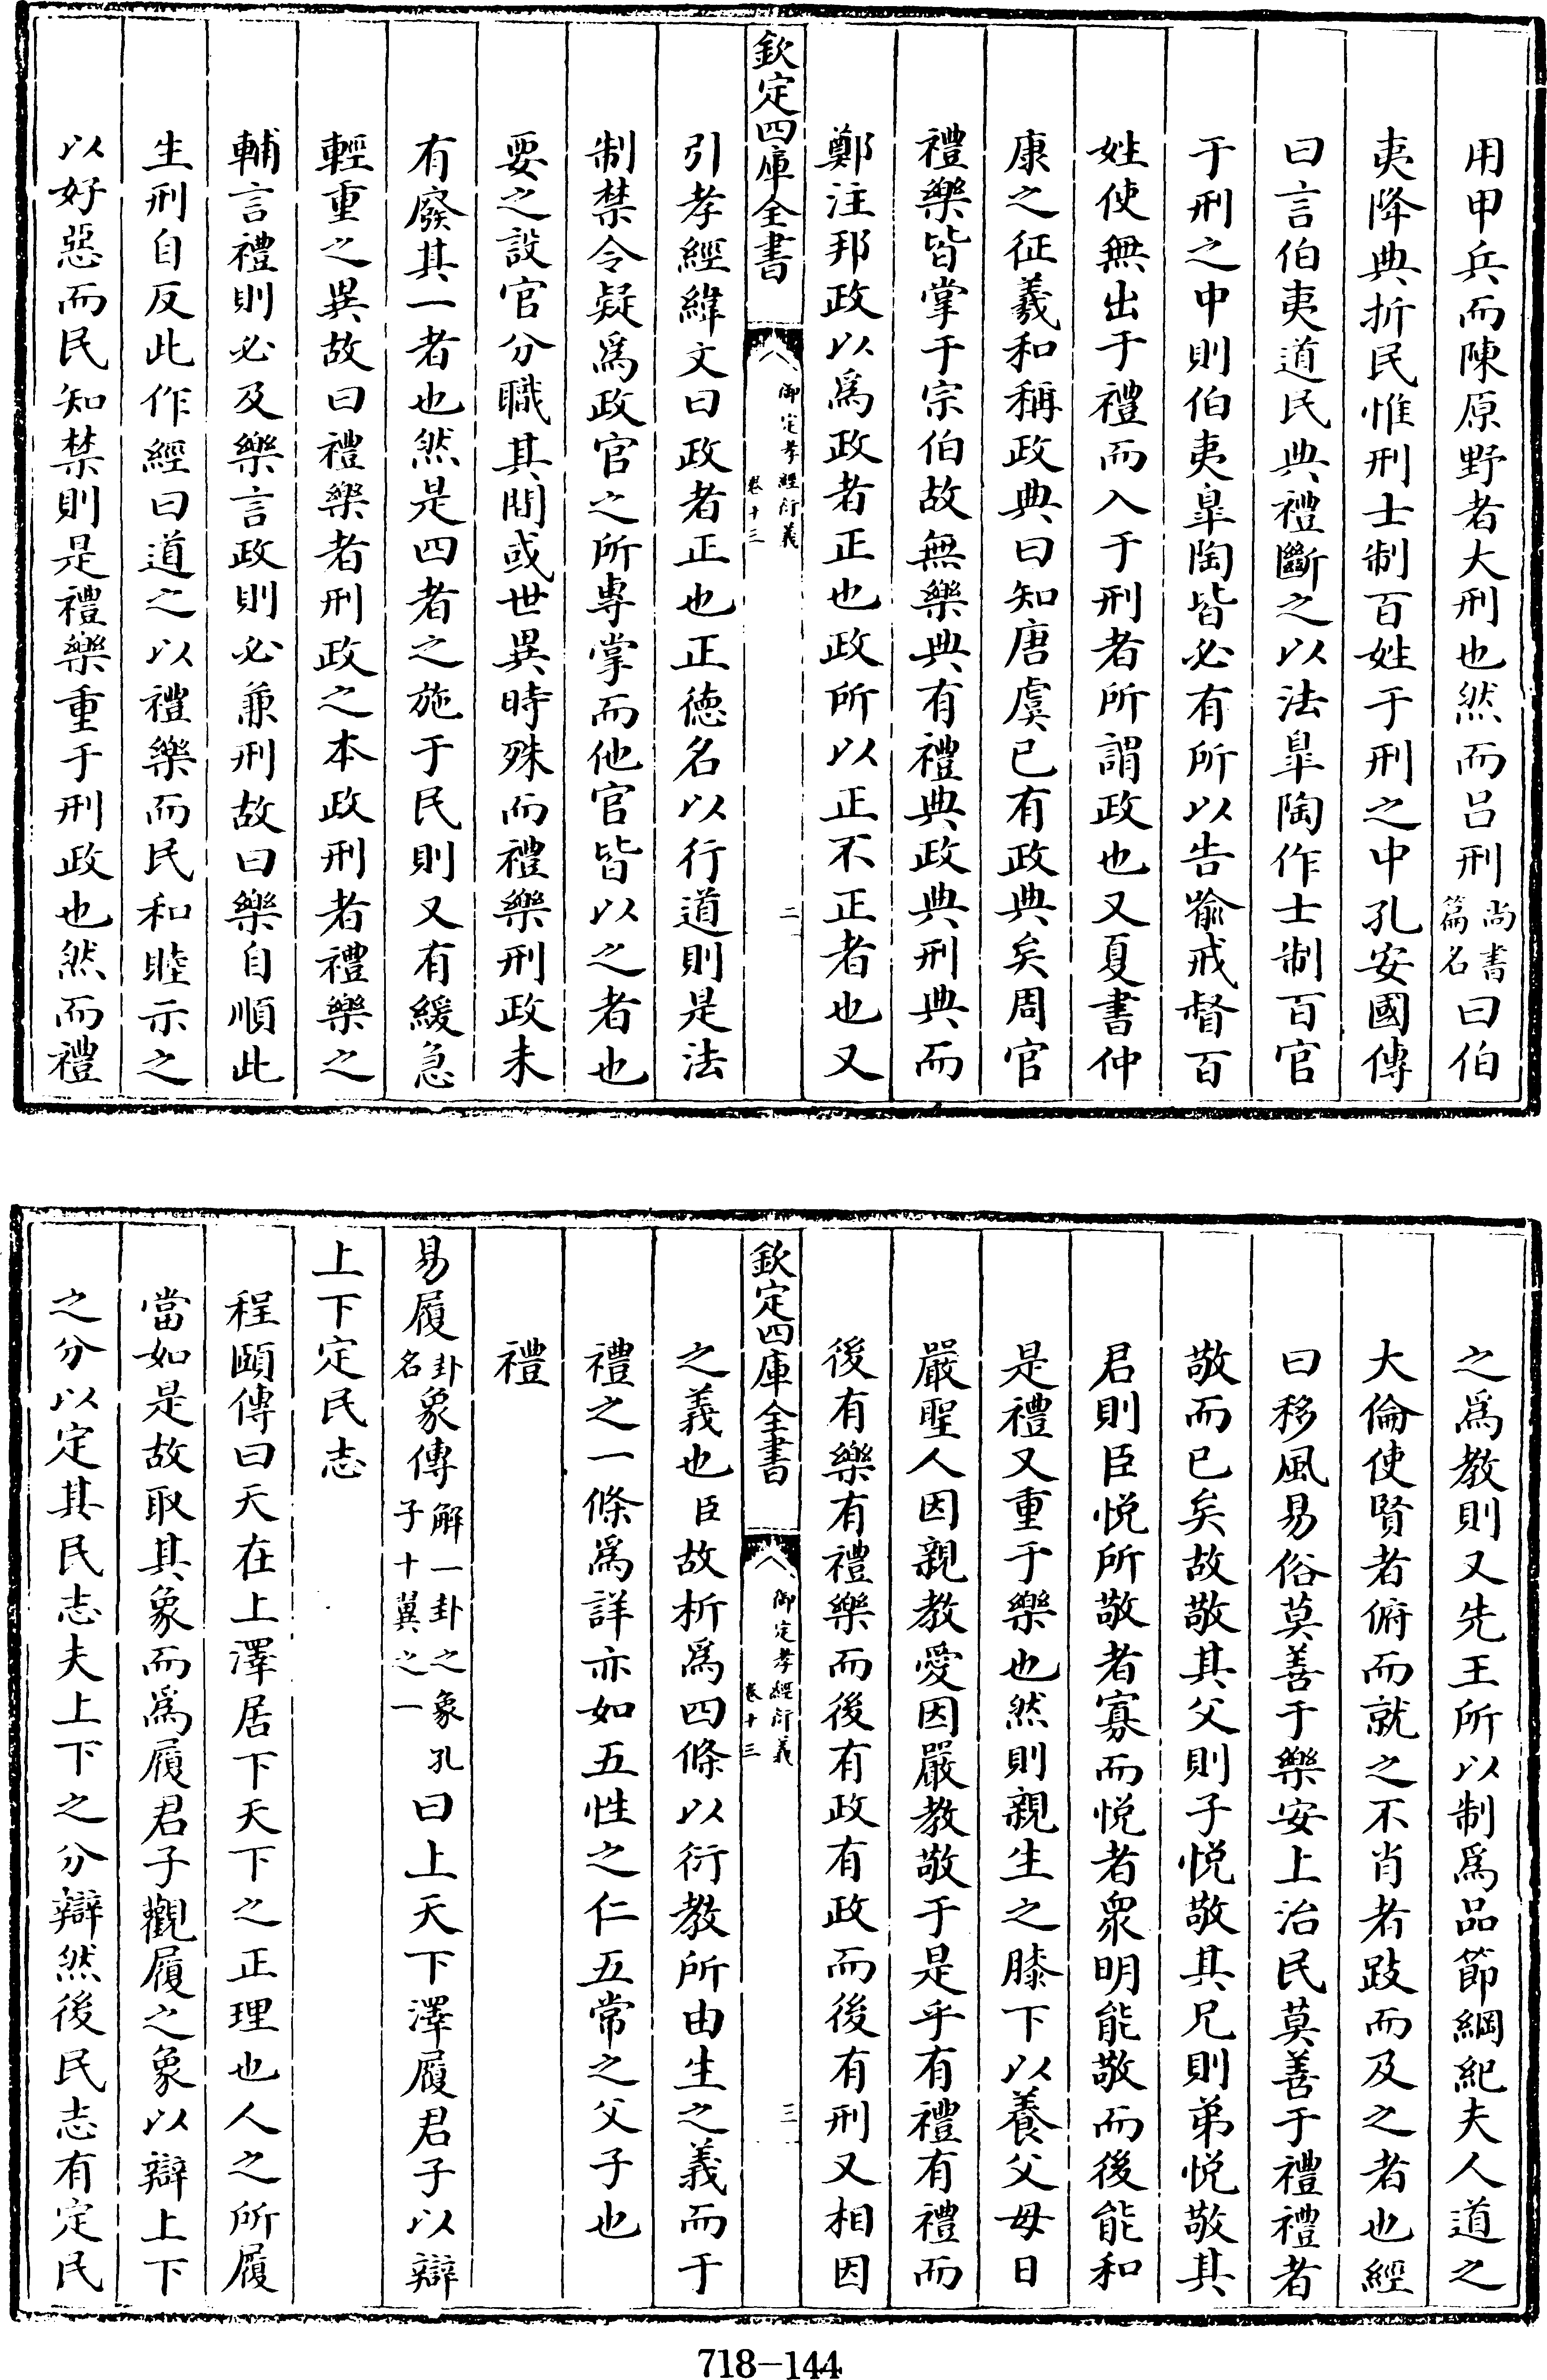 用甲兵而陳原野者大刑也然而呂刑尚書篇名曰伯
夷降典折民惟刑士制百姓于刑之中孔安國傳
曰言伯夷道民典禮斷之以法臯陶作士制百官
于刑之中則伯夷臯陶皆必有所以告喻戒督百
姓使無出于禮而入于刑者所謂政也又夏書仲
康之征羲和稱政典曰知唐虞已有政典矣周官
禮樂皆掌于宗伯故無樂典有禮典政典刑典而
鄭注邦政以爲政者正也政所以正不正者也又
欽定四庫全書
御定孝經衍義
卷十三
二
引孝經緯文曰政者正也正徳名以行道則是法
制禁令疑爲政官之所專掌而他官皆以之者也
要之設官分職其間或世異時殊而禮樂刑政未
有廢其一者也然是四者之施于民則又有緩急
輕重之異故曰禮樂者刑政之本政刑者禮樂之
輔言禮則必及樂言政則必兼刑故曰樂自順此
生刑自反此作經曰道之以禮樂而民和睦示之
以好惡而民知禁則是禮樂重于刑政也然而禮
之爲教則又先王所以制爲品節綱紀夫人道之
大倫使賢者俯而就之不肖者跂而及之者也經
曰移風易俗莫善于樂安上治民莫善于禮禮者
敬而已矣故敬其父則子悅敬其兄則弟悅敬其
君則臣悅所敬者寡而悅者衆明能敬而後能和
是禮又重于樂也然則親生之膝下以養父母日
嚴聖人因親教愛因嚴教敬于是乎有禮有禮而
後有樂有禮樂而後有政有政而後有刑又相因
欽定四庫全書
御定孝經衍義
卷十三
三
之義也臣故析爲四條以衍教所由生之義而于
禮之一條爲詳亦如五性之仁五常之父子也
禮
易履卦名象傳解一卦之象孔子十翼之一曰上天下澤履君子以辯
上下定民志
程頤傳曰天在上澤居下天下之正理也人之所履
當如是故取其象而爲履君子觀履之象以辯上下
之分以定其民志夫上下之分辯然後民志有定民
718-144